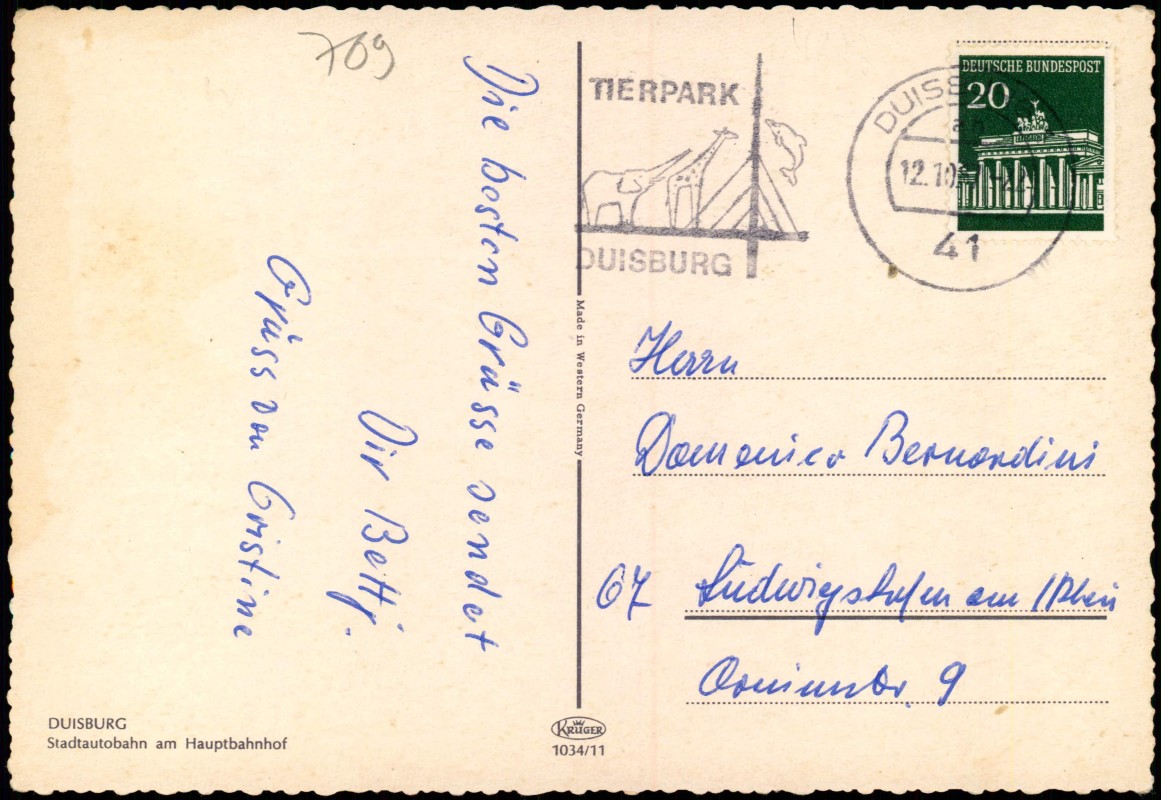 709
Die besten Grüsse sendet
Dir Betti.
Grüss von Cristine
DUISBURG
Stadtautobahn am Hauptbahnhof
Made in Western Germany
KRÜGER
1034/11
TIERPARK
DUISBURG
DUIS
12.10
41
DEUTSCHE BUNDESPOST
20
Herrn
Domenico Bernardini
67 Ludwigshafen am /Rhein
9